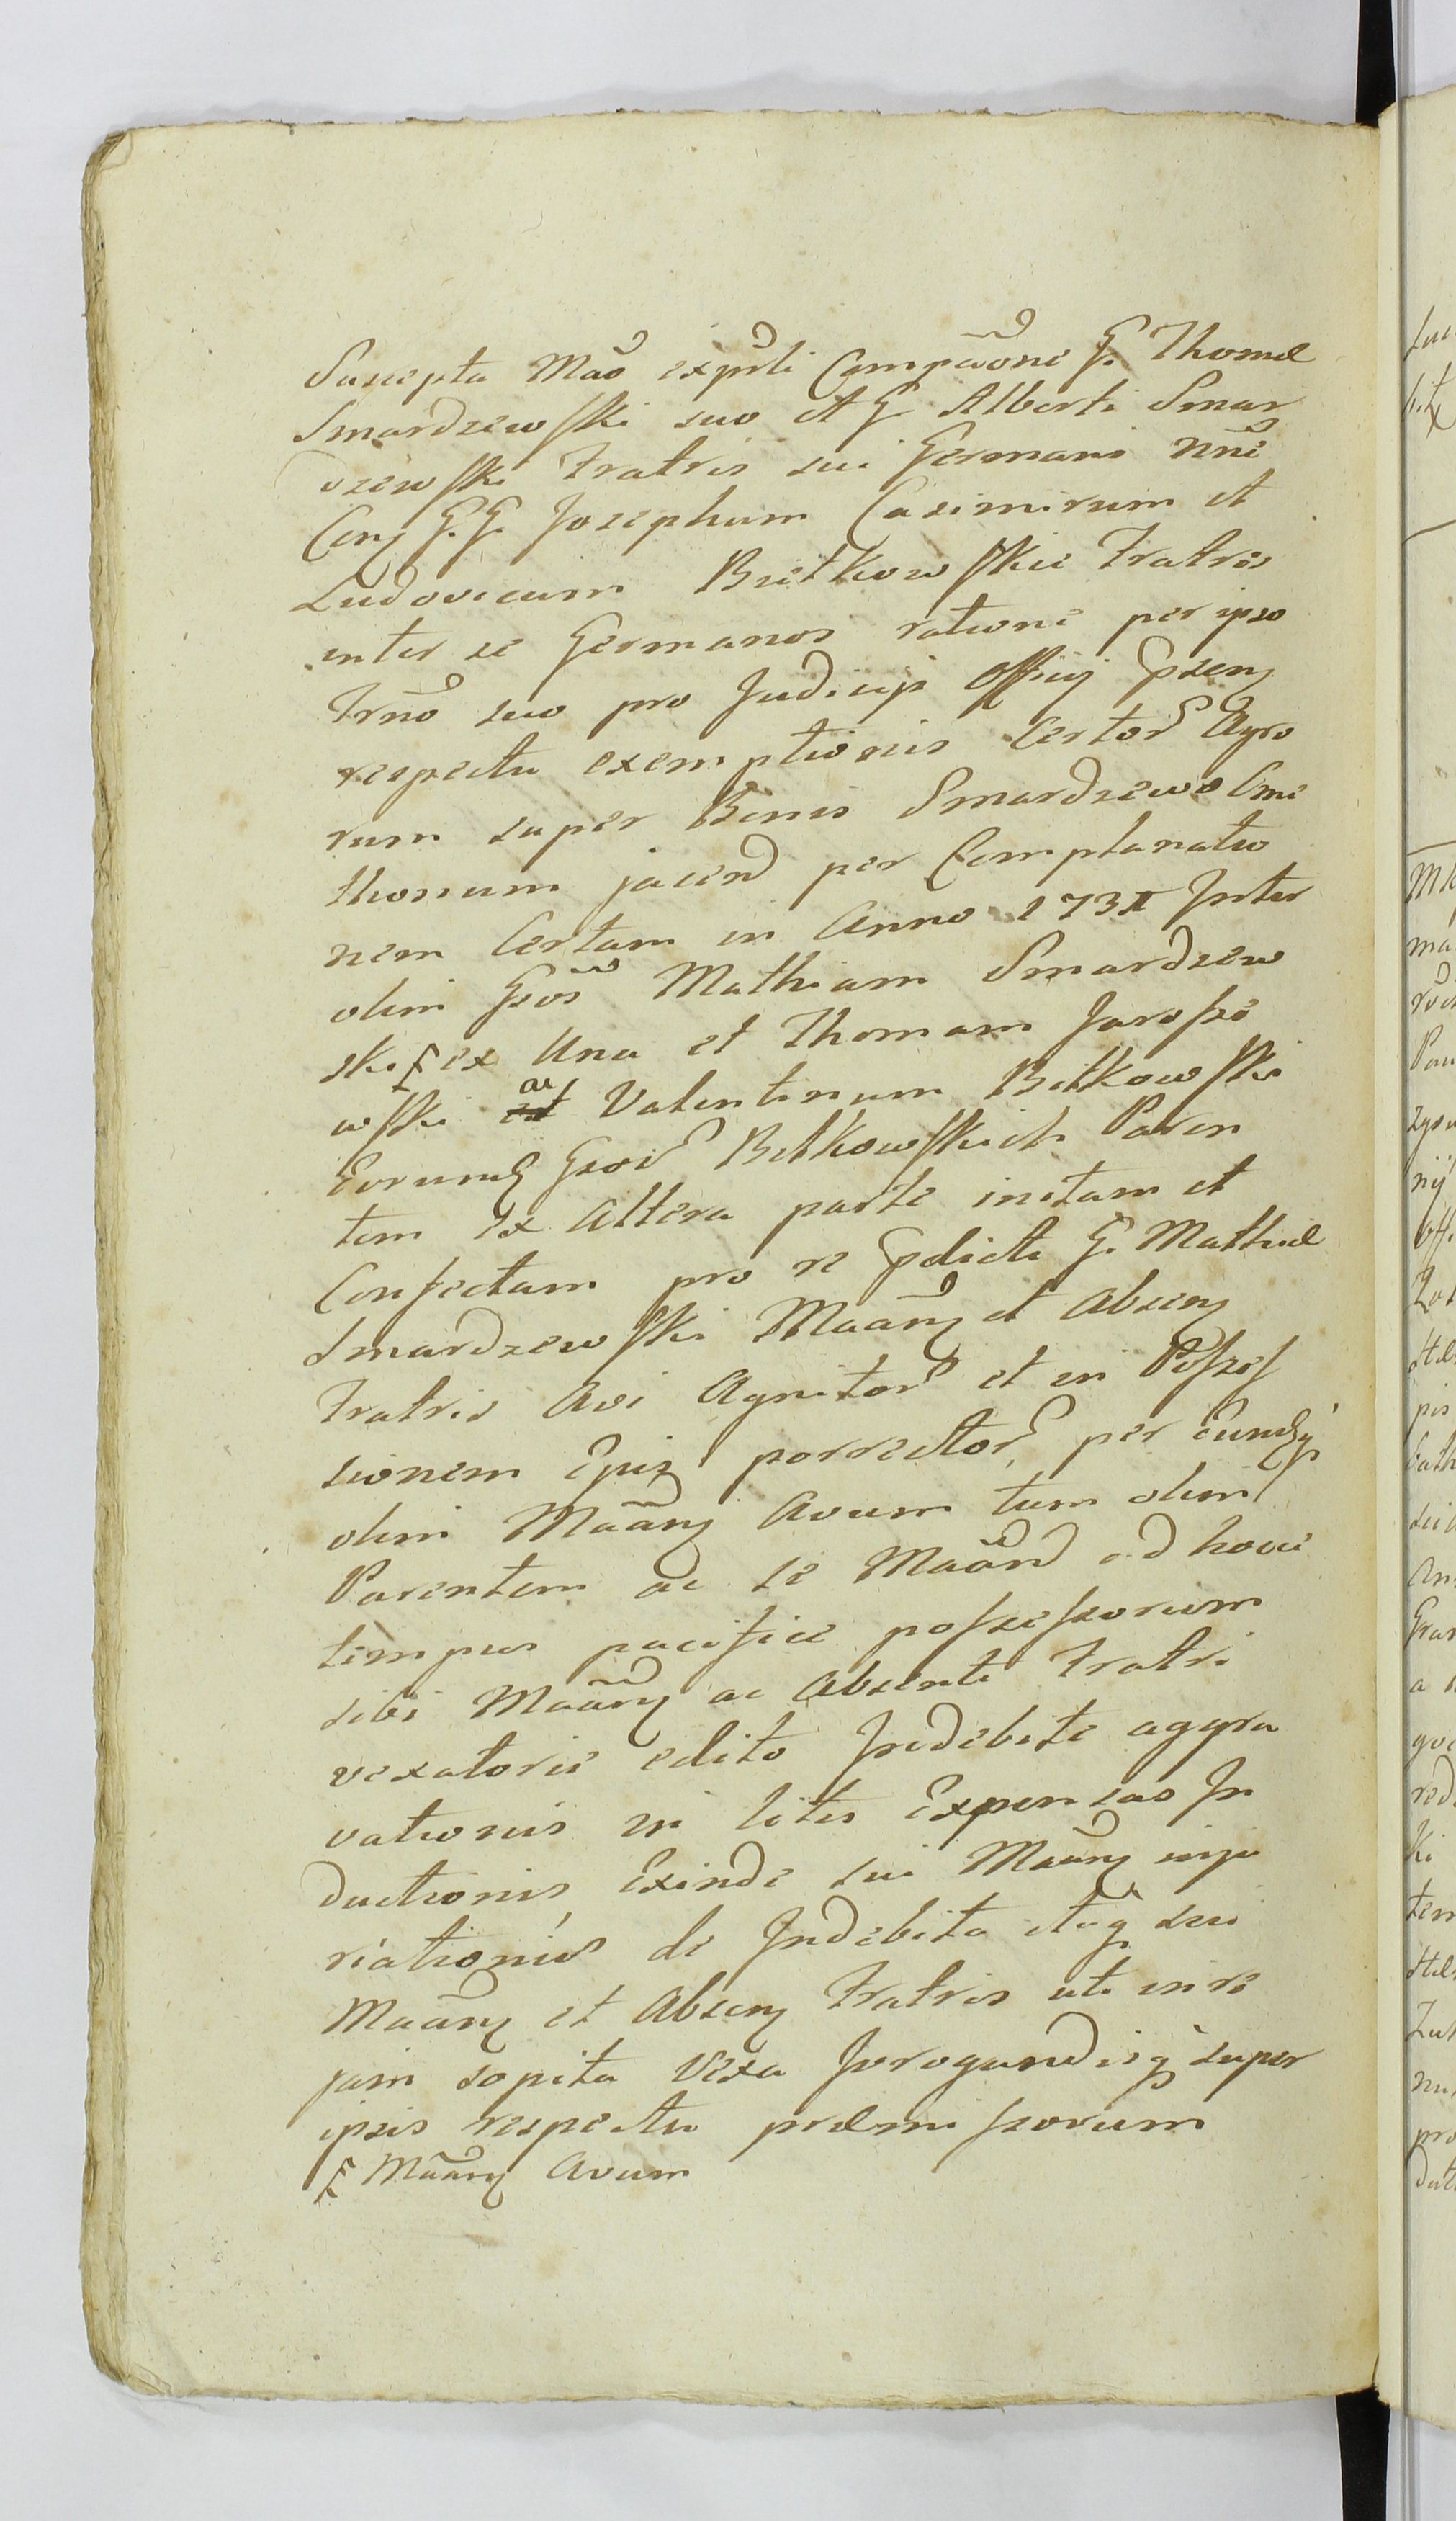 Suscepta Mao exprli Compãone G. Thomæ
Smardzewski suo et G Alberti Smar
dzewski Fratris sui Germani nne
Conz G.G. Josephum Casimirum et
Ludovicum Bietkowskie Fratres
inter se Germanos ratione per ipso
Frno suo pro Judicijs Officij psenz
respectu exemptionis certor Agro
rum super Bonis Smardzewo Cme
thonum jacend per Complanatio
nem Certam in Anno 173 Inter
olim Gsos Mathiam Smardzew
ski ex Una et Thomam Jarosze
wski et ac Valentinum Bitkowski
Eorumq Gsor Bitkowskich Paren
tem ex Altera parte initam et
Confectam pro re pdicti G. Mathiæ
Smardzewski Maanz et Absenz
Fratris Avi Agnitor et in Posses
sionem Ejus porrector, per eundz
olim Maanz Avum tum olim
Parentem ac se Maand ad hocce
tempus pacifice possessorum
sibi Maanz ac Absenti Fratri
vexatorie edito Indebite aggra
vationis in litis Expensas In
ductionis Exinde sui Maanz inju
riationis de Indebita itaq sui
Maanz et Absenz Fratris uti in re
jam sopita Vexa Jrrogandisq super
ipsis respectu præmissorum
Maanz Avum